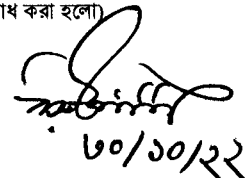 ধ করা হলো)
৩০/১০/২২